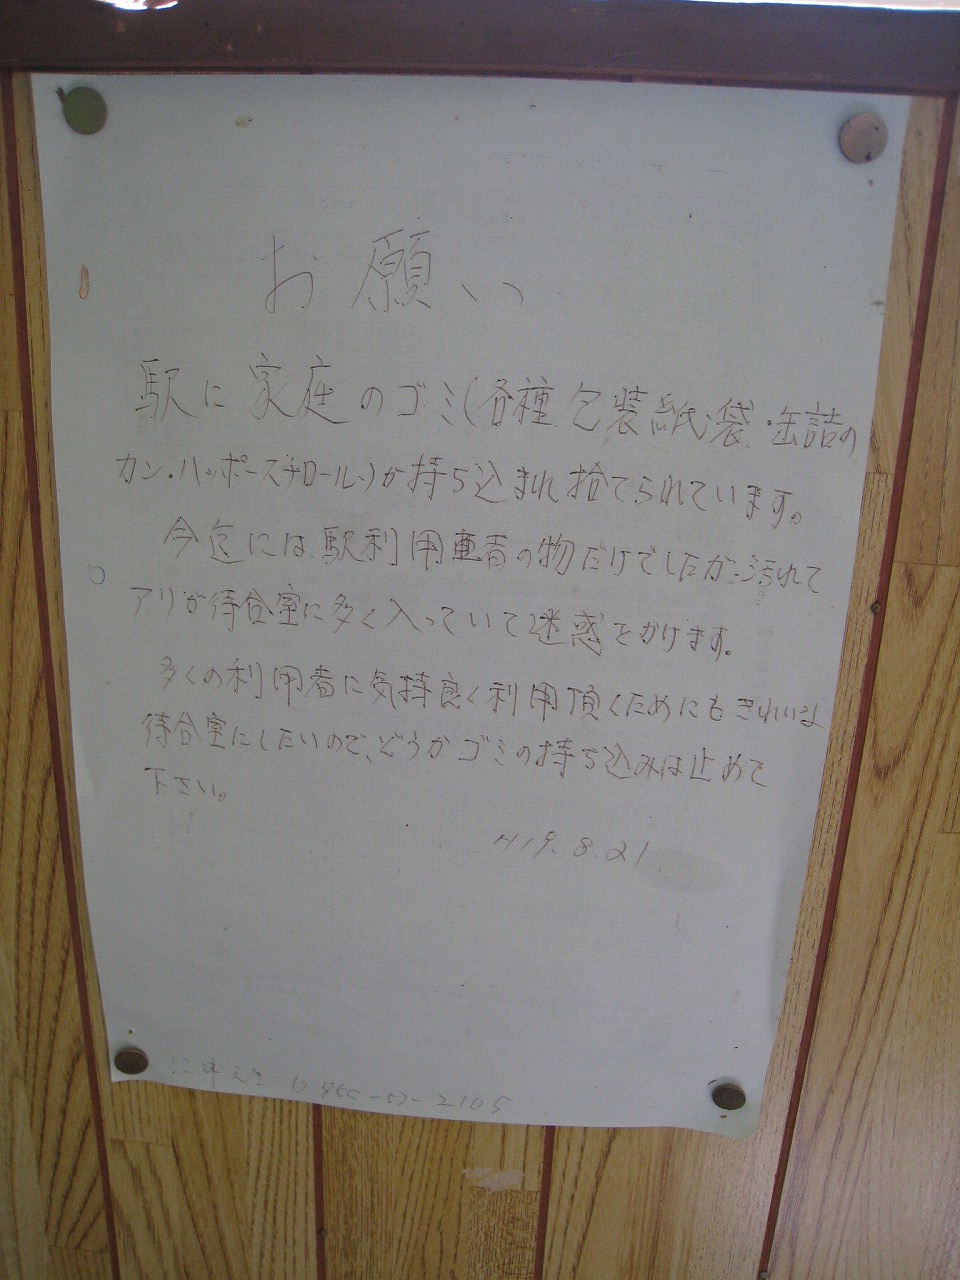 お願い
駅に家庭のゴミ(各種包装紙・袋・缶詰の
カン・ハッポースチロール)が持ち込まれ捨てられています。
今迄には駅利用者の物だけでしたが、汚れて
アリが待合室に多く入っていて迷惑をかけます。
多くの利用者に気持良く利用頂くためにもきれいな
待合室にしたいので、どうかゴミの持ち込みは止めて
下さい。
H19.8.21
2105